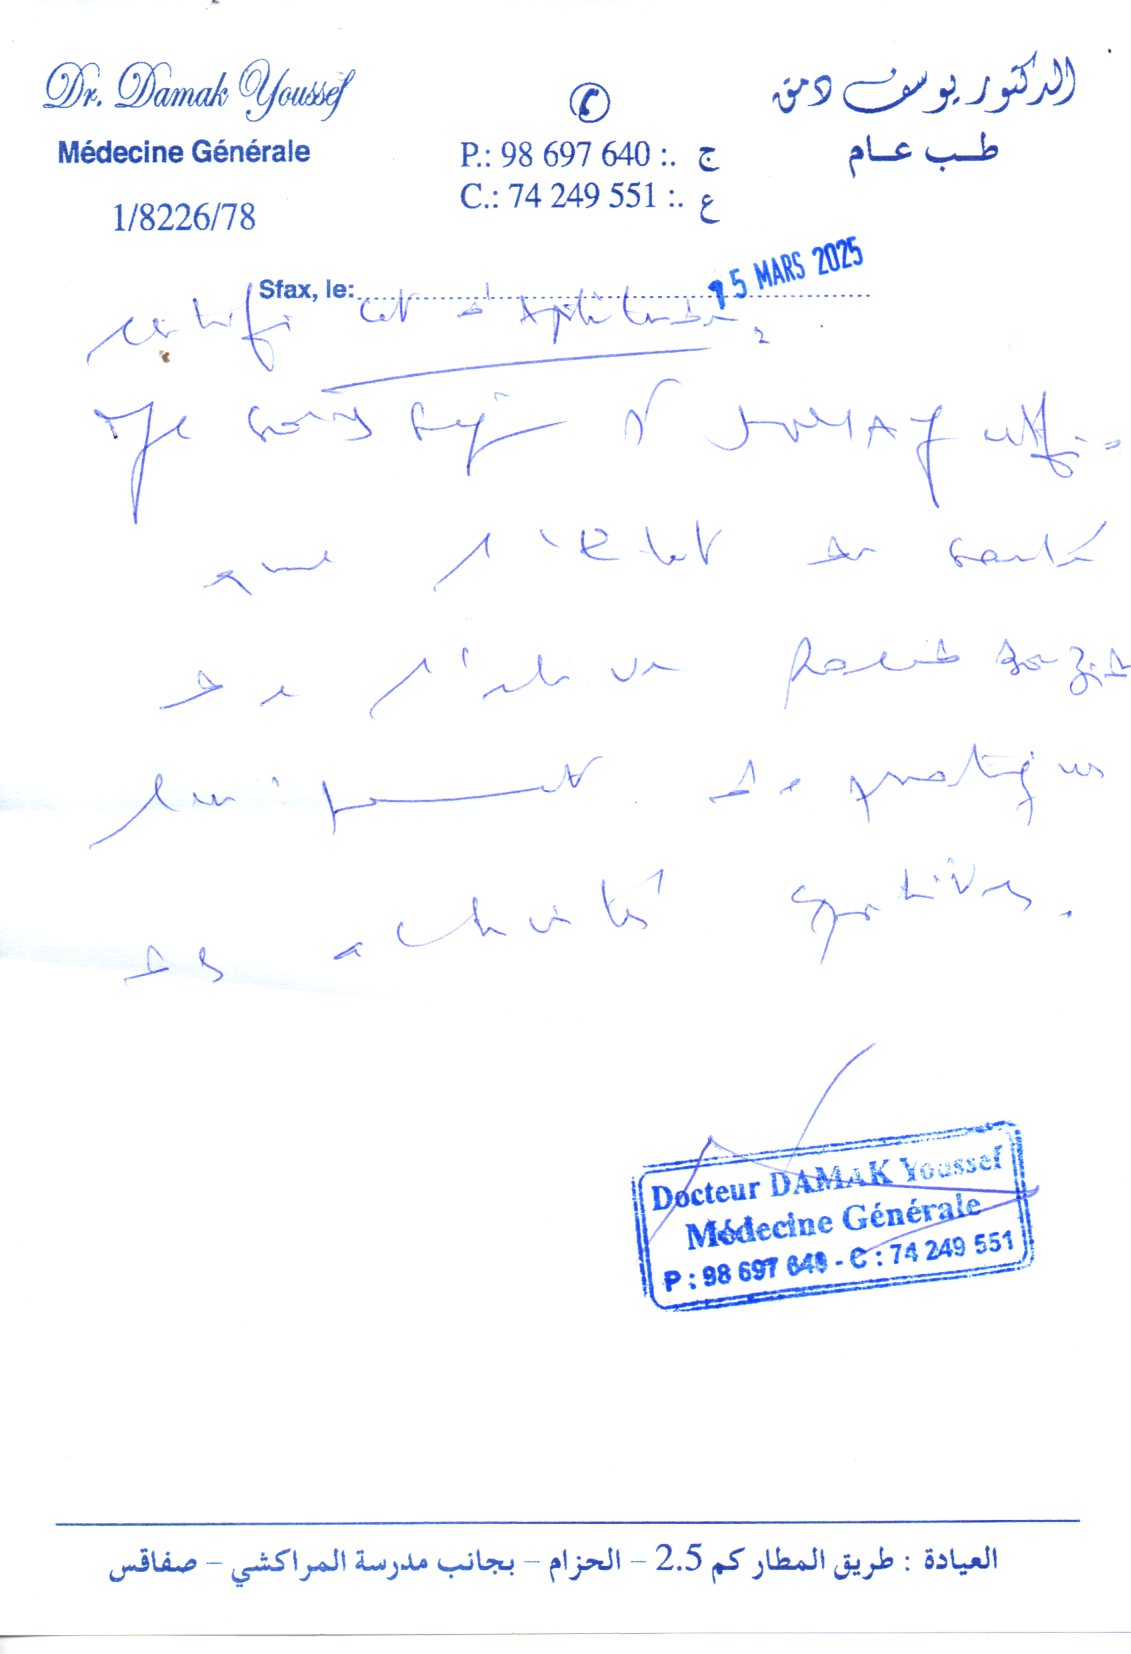 Dr. Damak Youssef
Médecine Générale
1/8226/78
P.: 98 697 640 :. ج
C.: 74 249 551 :. ع
الدكتور يوسف دمق
طب عام
Sfax, le: 15 MARS 2025
certificat d'aptitude
Je soussigné Dr
que l'état de santé
de l'élève
de pratiquer
des activités sportives.
Docteur DAMAK Youssef
Médecine Générale
P : 98 697 640 - C : 74 249 551
العيادة : طريق المطار كم 2.5 – الحزام – بجانب مدرسة المراكشي – صفاقس